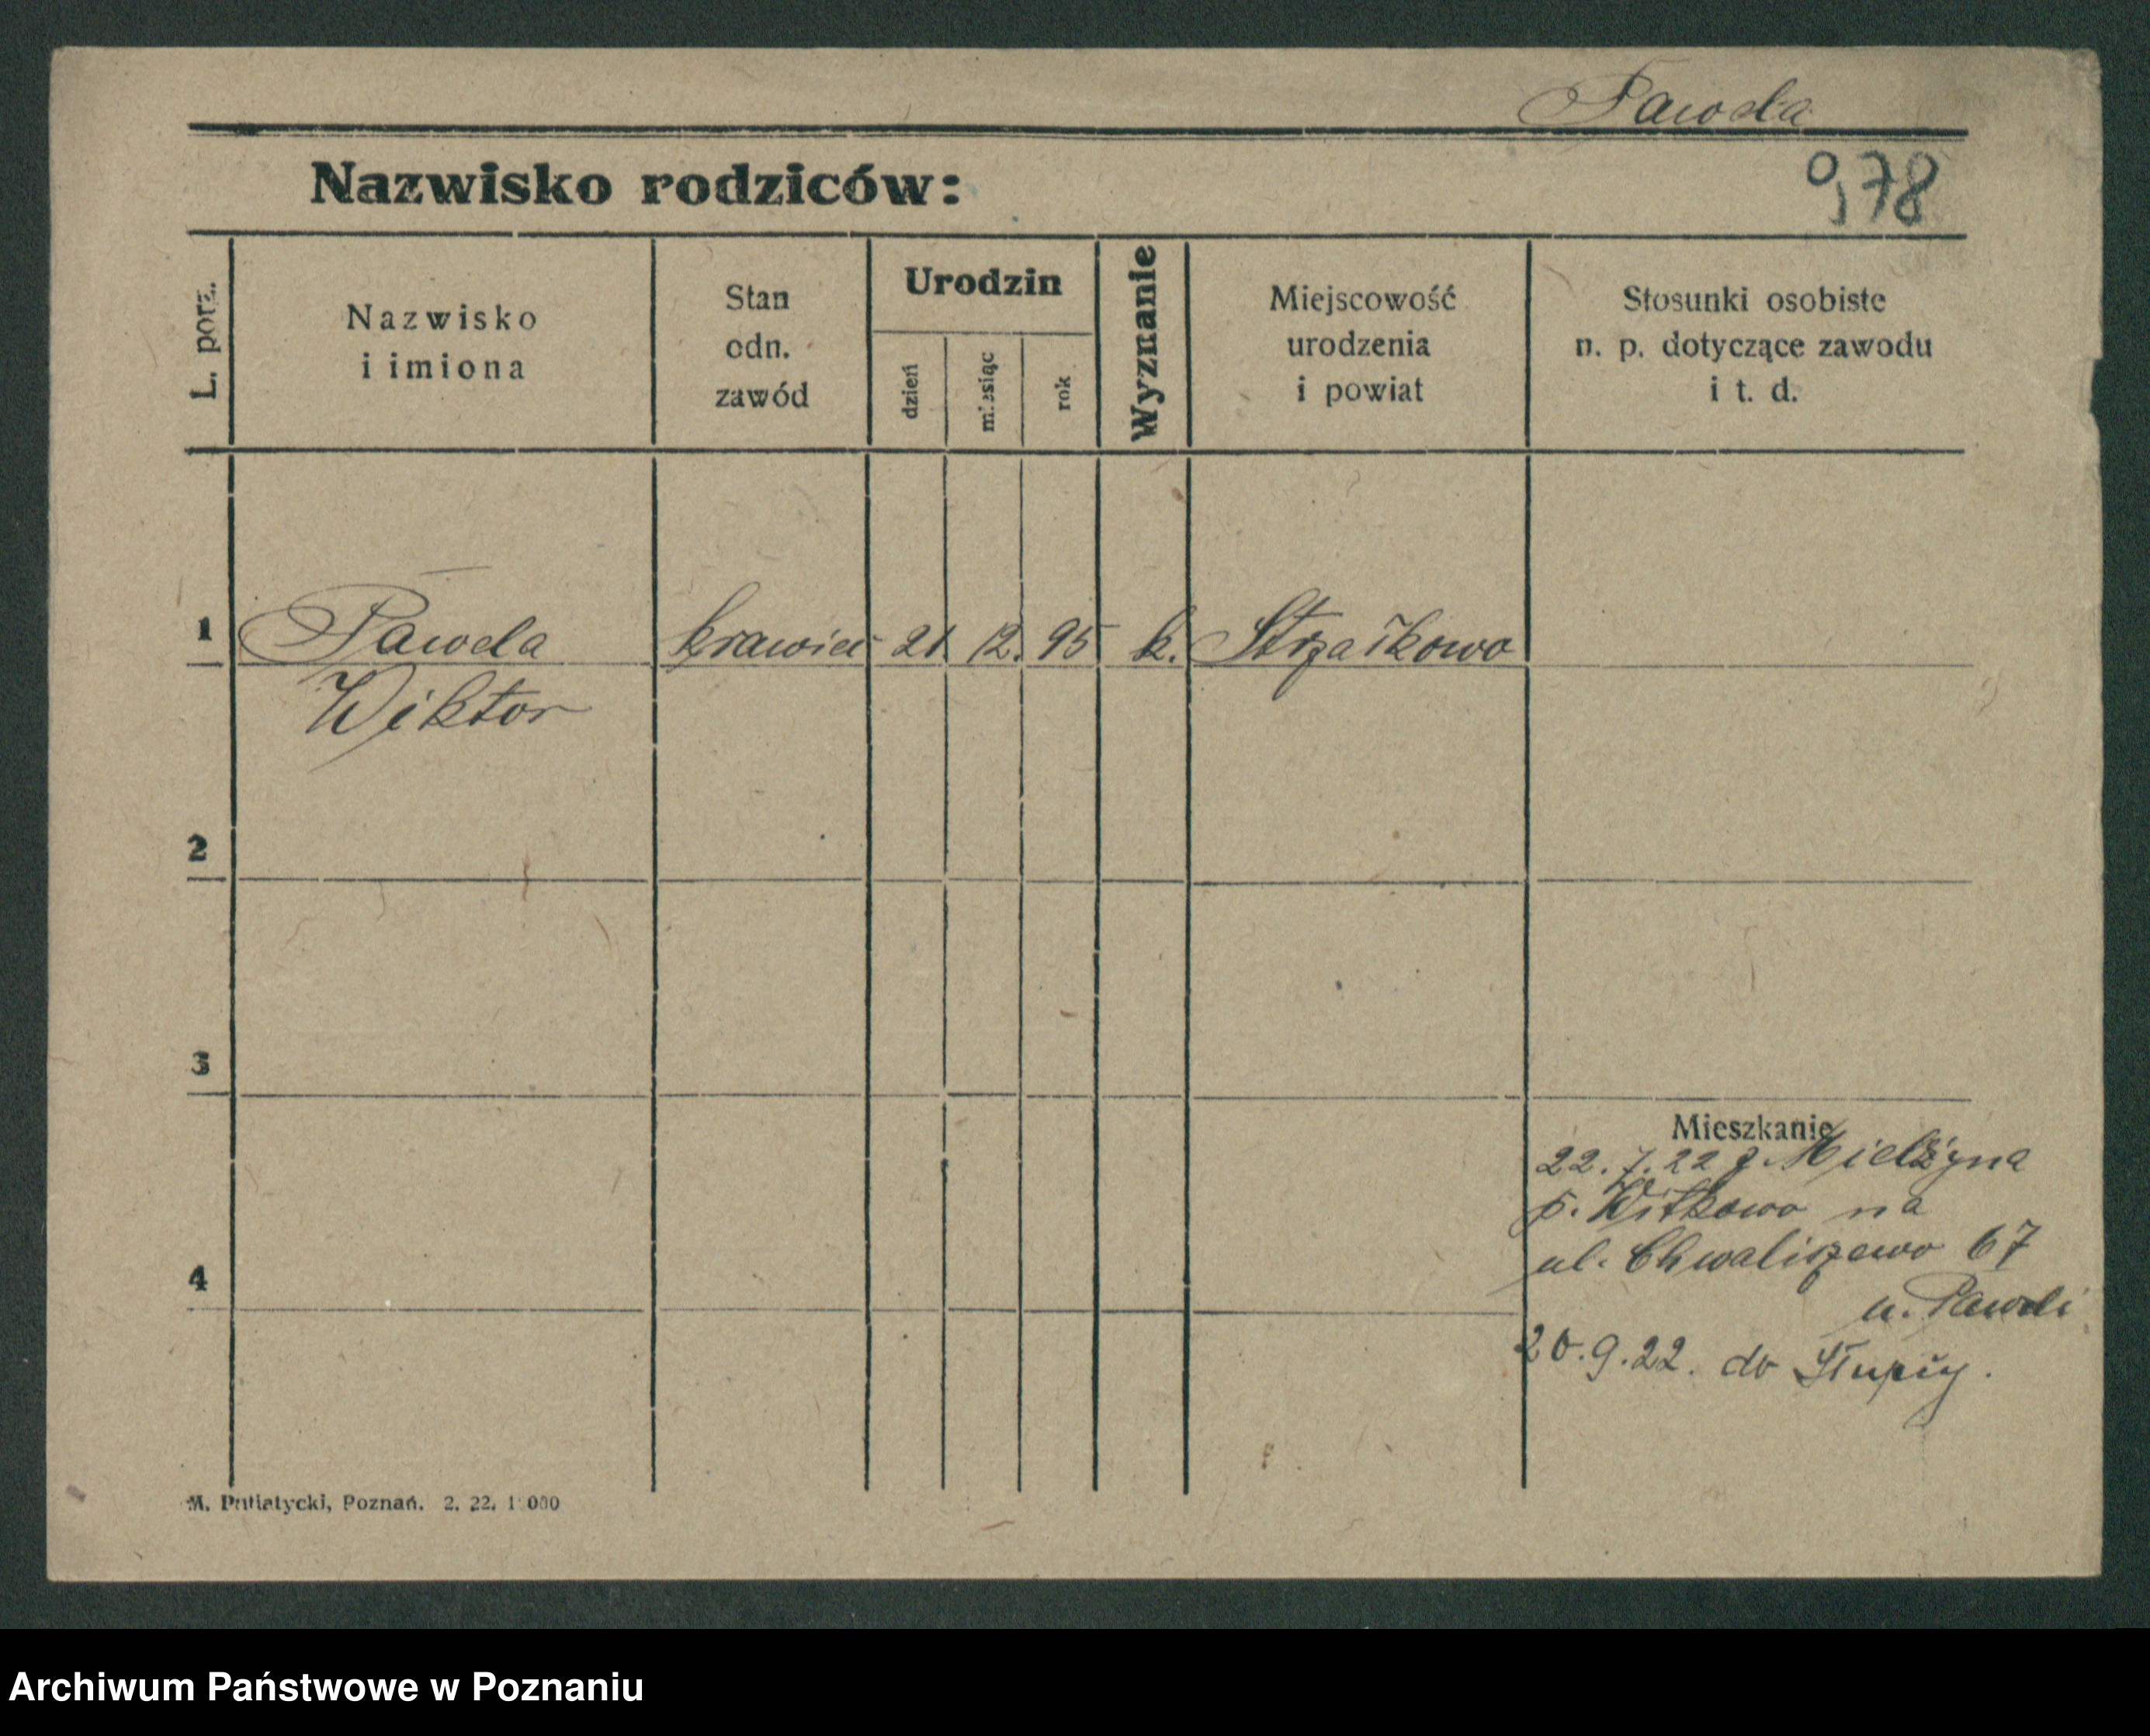 Pawela
Nazwisko rodziców:
978
L. porz.
Nazwisko
i imiona
Stan
odn.
zawód
Urodzin
dzień
miesiąc
rok
Wyznanie
Miejscowość
urodzenia
i powiat
Stosunki osobiste
n. p. dotyczące zawodu
i t. d.
1 Pawela krawiec 21 12. 95 k. Strzałkowo
Wiktor
2
3
Mieszkanie
22. 7. 22 z Mielżyna
p. Witkowo na
ul. Chwaliszewo 67
4
u. Paweli
20. 9. 22. do Słupcy.
M. Putiatycki, Poznań. 2. 22. 1 000
Archiwum Państwowe w Poznaniu